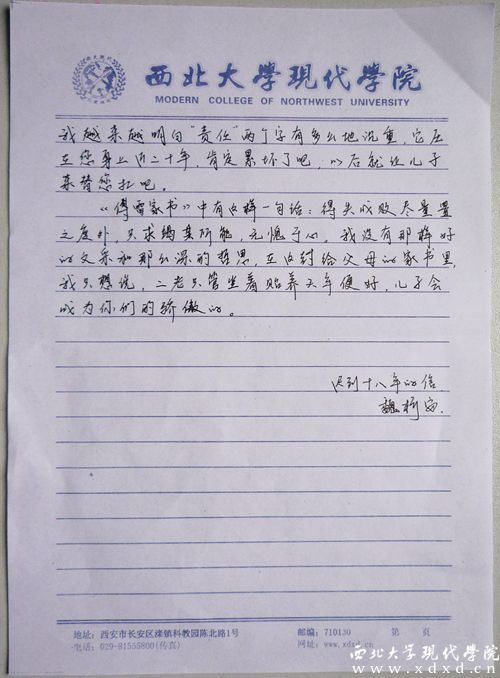 西北大學現代學院
MODERN COLLEGE OF NORTHWEST UNIVERSITY
我越来越明白“责任”两个字有多么地沉重，它压
在您身上近二十年，肯定累坏了吧，以后就让儿子
来替您扛吧。
《傅雷家书》中有这样一句话：得失成败尽量置
之度外，只求竭其所能，无愧于心。我没有那样好
的文采和那么深的哲思，在这封给父母的家书里，
我只想说，二老只管坐着贻养天年便好，儿子会
成为你们的骄傲的。
迟到十八年的信
魏
地址：西安市长安区滦镇科教园陈北路1号
邮编：710130
第 页
电话：029-81555800(传真)
网址：www.xdxd.cn
西北大学现代学院
www.xdxd.cn